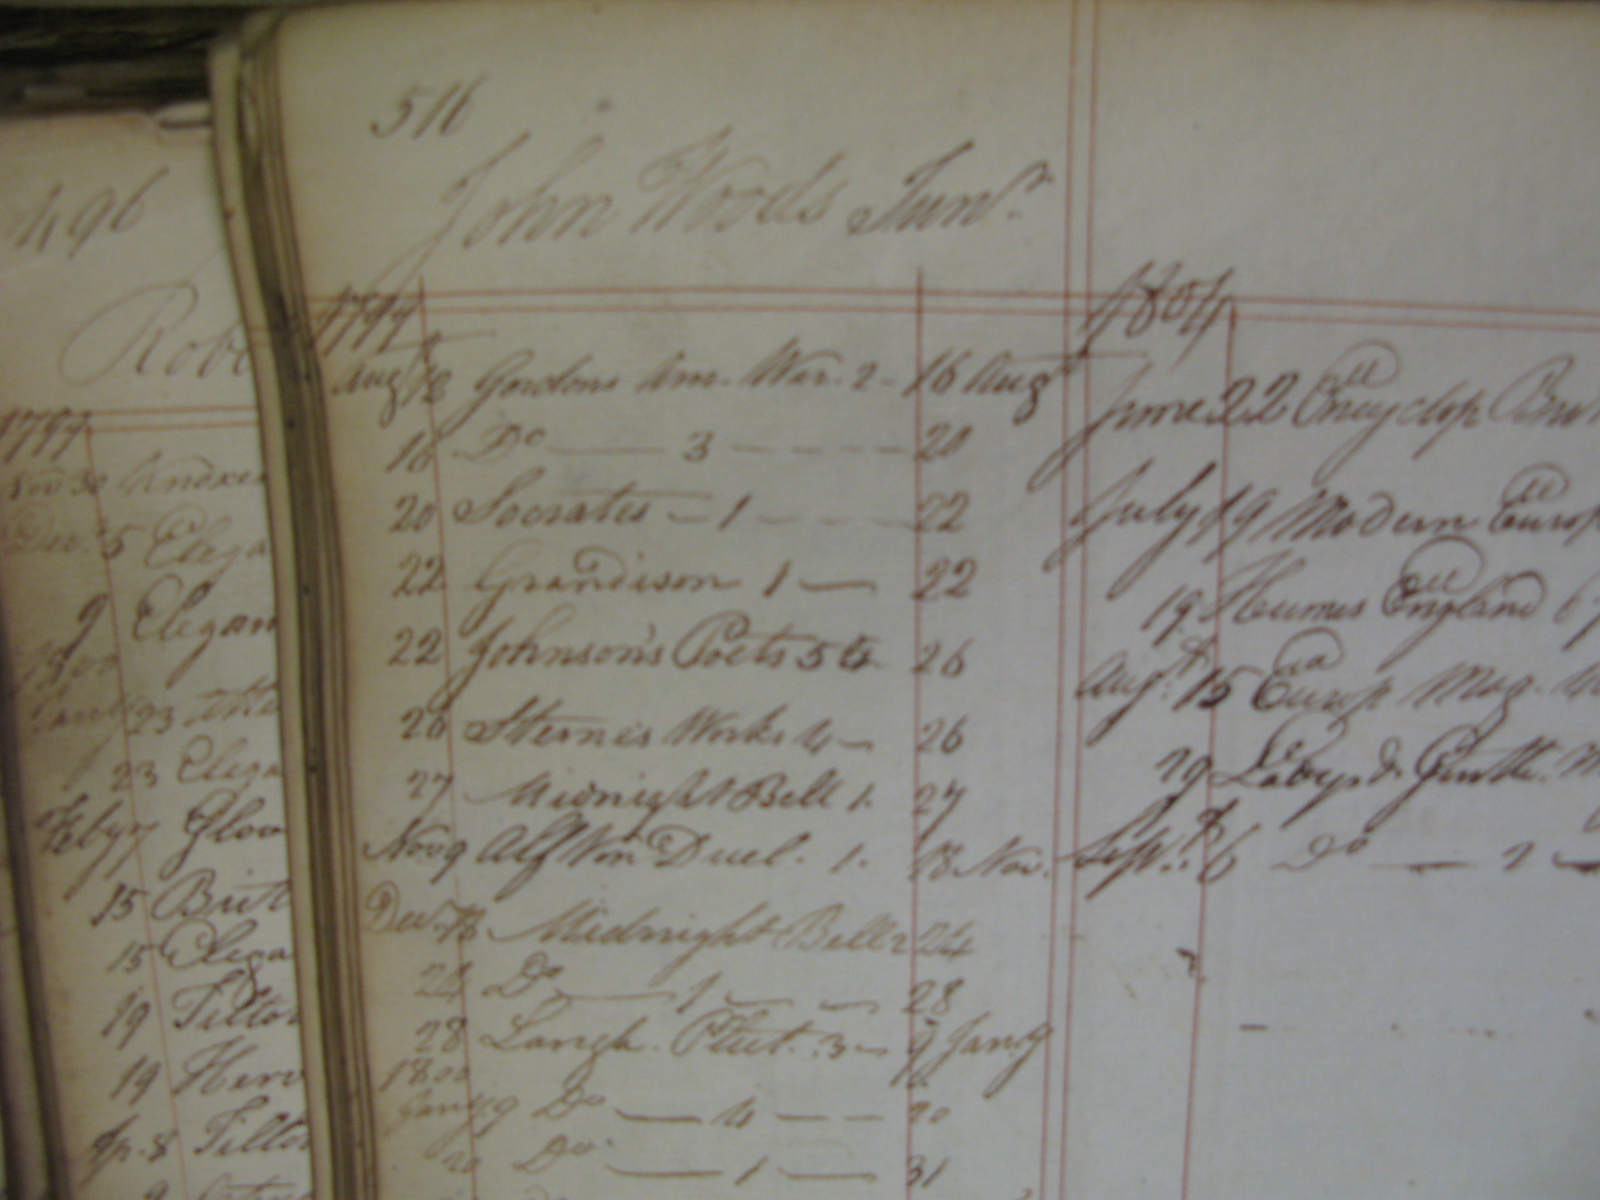 496
Robe
1799
Nov 30
Dec. 5 Elega
9 Elegan
1800
23
23 Elega
Feby 7
15 Brit
15 Elega
19 Tilton
19
Ap. 8 Tilto
516
John Woods Junr.
1799
Augt 12 Gordons Am. War. 2 - 16 Augt
16 Do — 3 - - - - 20
20 Socrates — 1 - - - 22
22 Grandison 1 — 22
22 Johnson's Poets 5 26
26 Sterne's Works 4 — 26
27 Midnight Bell 1. 27
Nov 9 Alf Von Duel. 1. 18 Nov.
Dec. 18 Midnight Bell 2 24
24 Do — 1 — — 28
28 Langh. Plut. 3 — 9 Jany
1800
Jany 9 Do — 4 — — 20
20 Do — 1 — 31
1804
June 22 Encyclop Brit
July 19 Modern Europ
19 Humes England 6
Augt. 15 Europ Mag.
29
Sept. 6 Do — 2 —